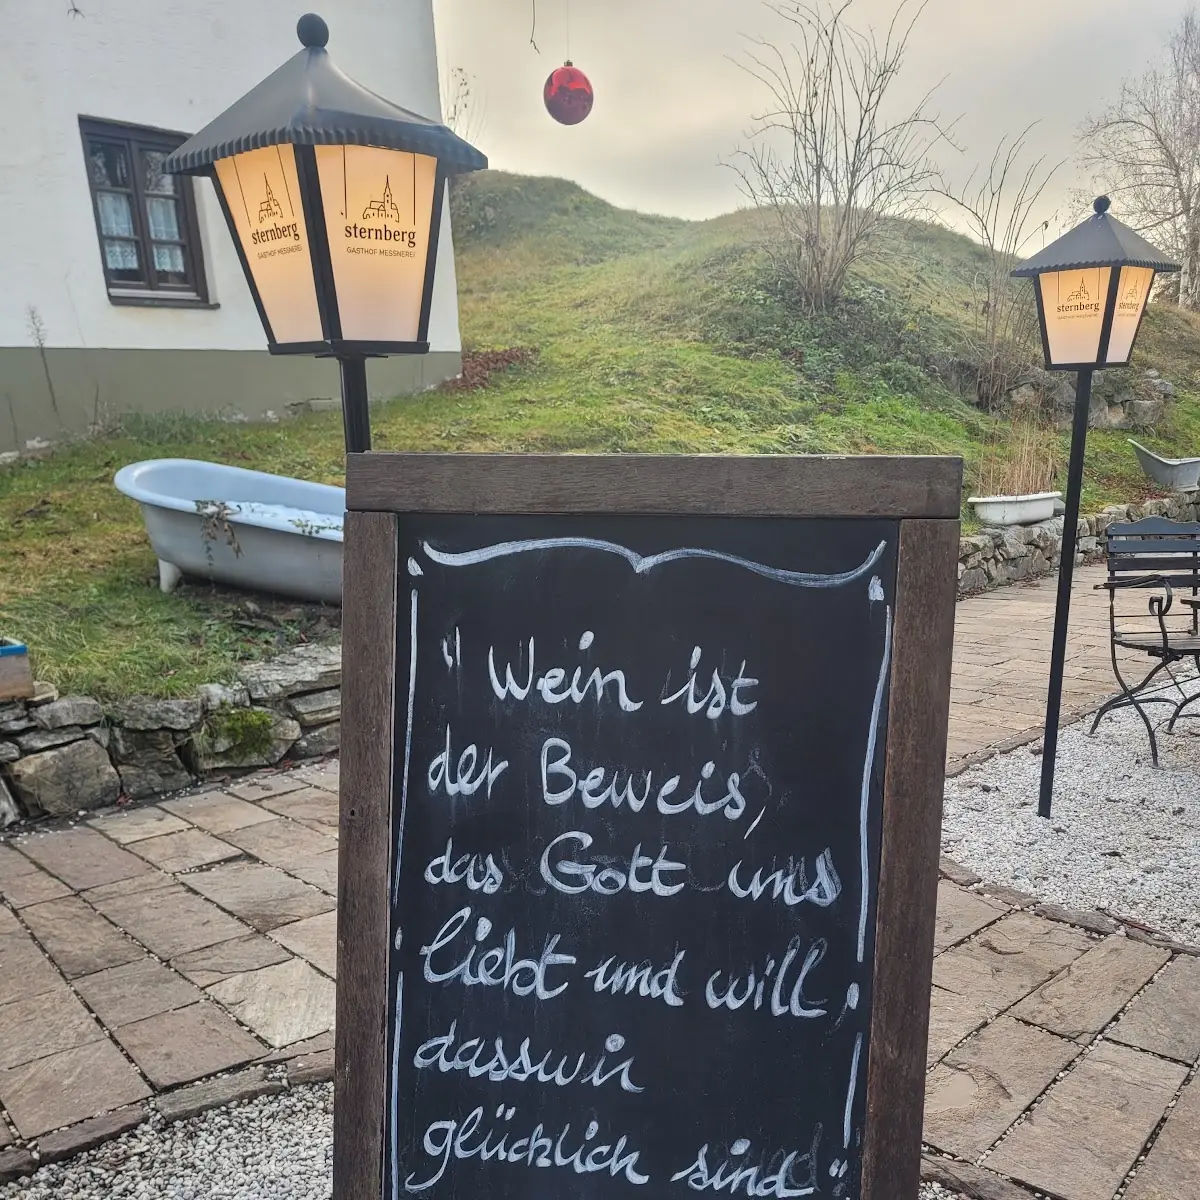 sternberg
GASTHOF MESSNEREI
sternberg
GASTHOF MESSNEREI
sternberg
GASTHOF MESSNEREI
sternberg
" Wein ist
der Beweis,
das Gott uns
liebt und will,
dasswir
glücklich sind"